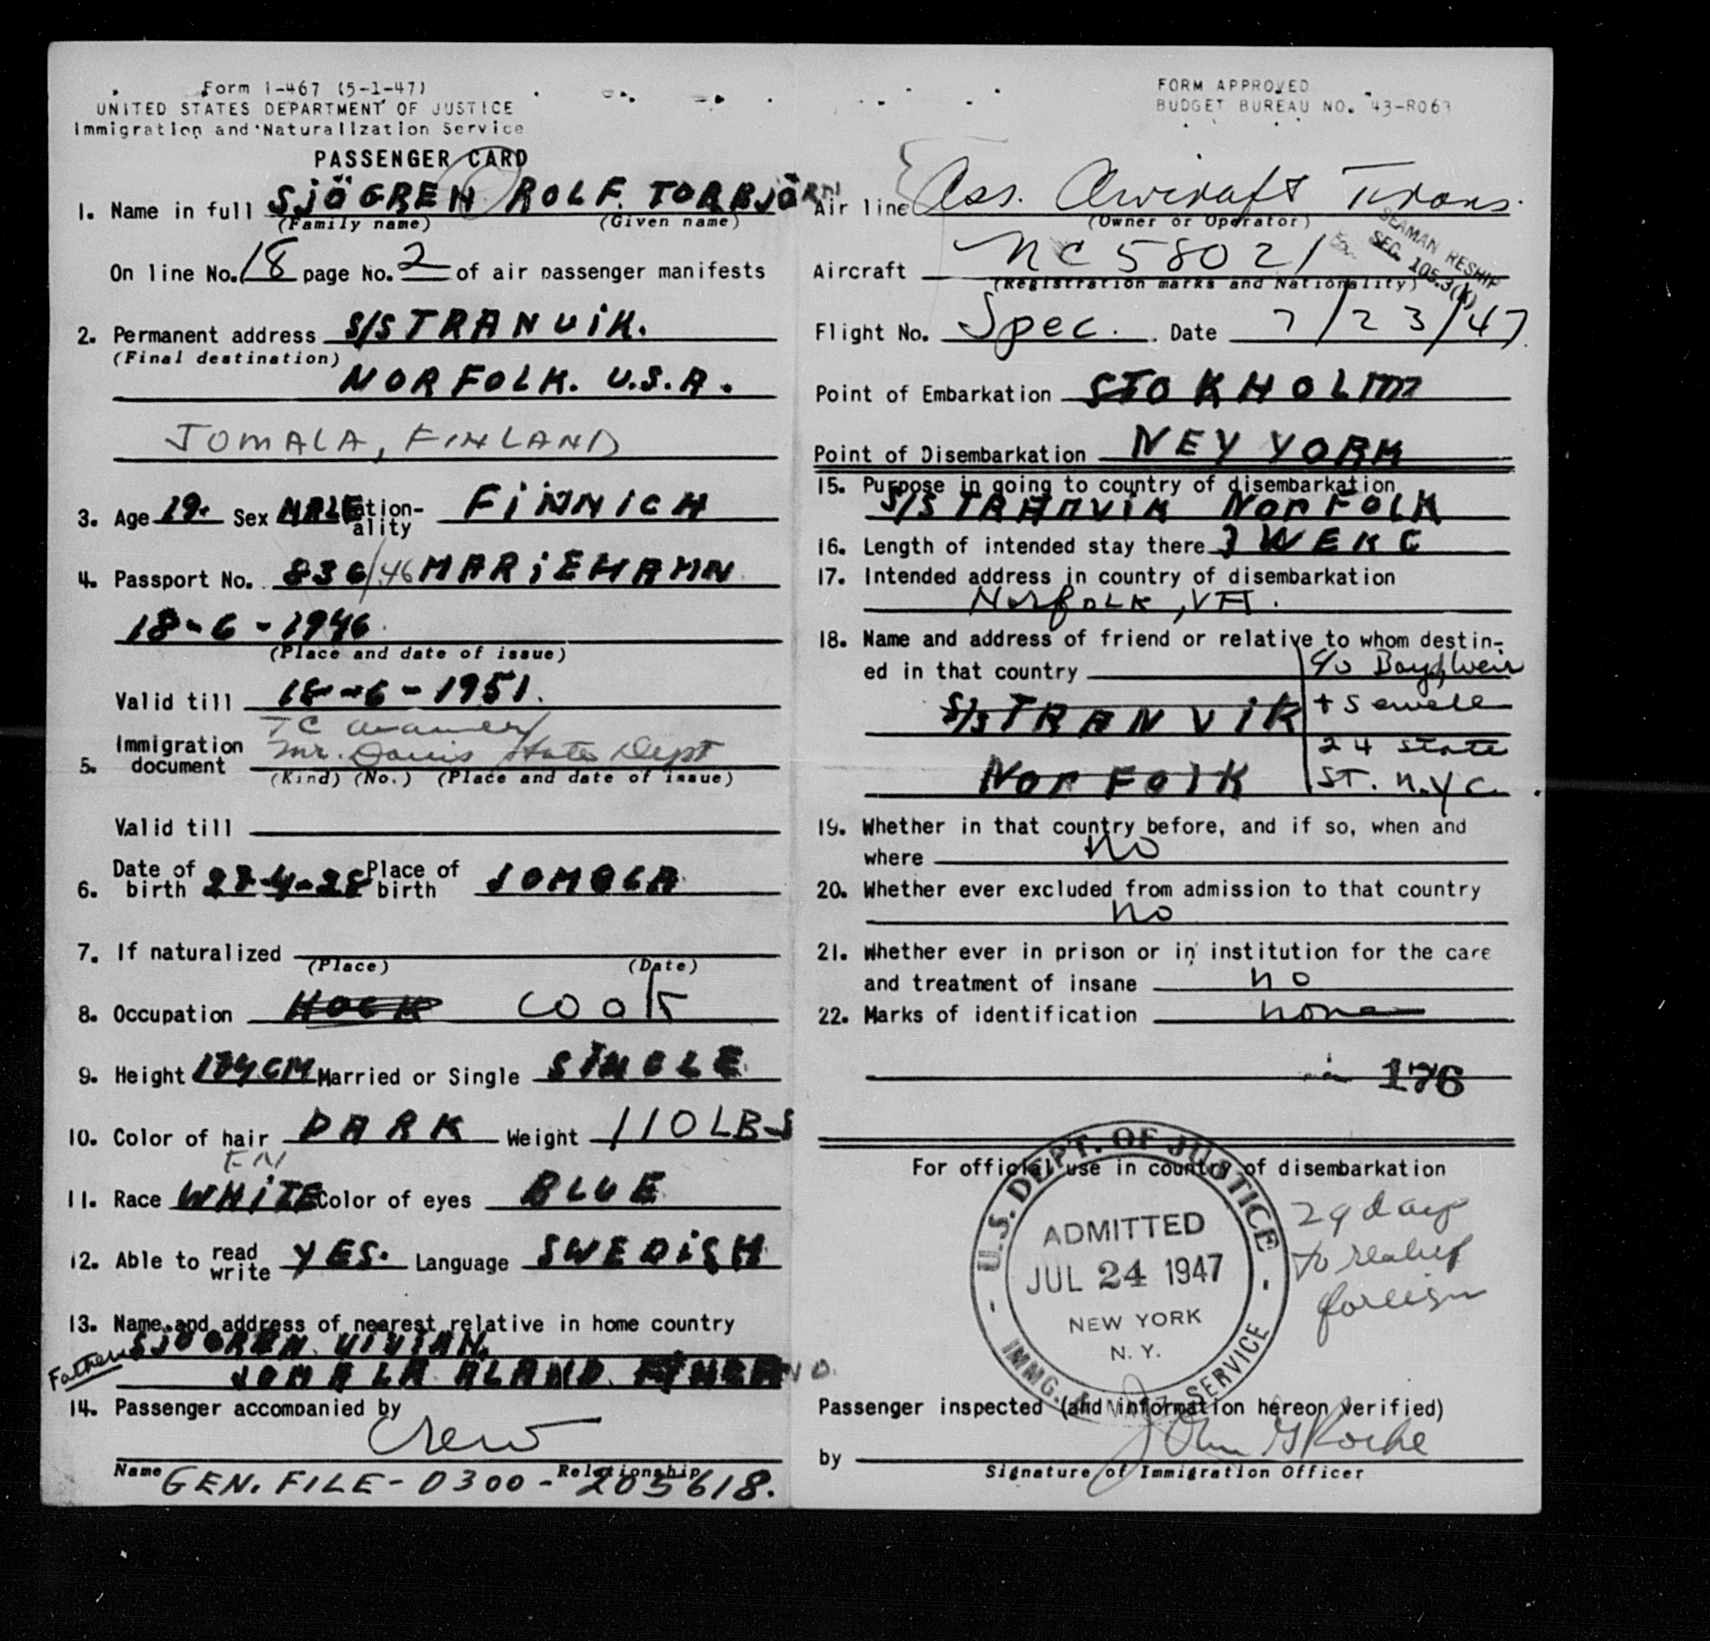 Form I-467 (5-1-47)
UNITED STATES DEPARTMENT OF JUSTICE
Immigration and Naturalization Service
PASSENGER CARD
1. Name in full SJÖGREN ROLF. TORBJÖRN
(Family name) (Given name)
On line No. 18 page No. 2 of air passenger manifests
2. Permanent address S/S TRANVIK.
(Final destination)
NORFOLK. U.S.A.
JOMALA, FINLAND
3. Age 19. Sex MALE Nationality FINNICH
4. Passport No. 836/46 MARIEHAMN
18-6-1946
(Place and date of issue)
Valid till 18-6-1951.
5. Immigration document
TC
Mr. Davis State Dept
(Kind) (No.) (Place and date of issue)
Valid till
6. Date of birth 27-4-28 Place of birth JOMALA
7. If naturalized
(Place) (Date)
8. Occupation HOCK COOK
9. Height 174 CM Married or Single SINGLE
10. Color of hair DARK Weight 110 LBS
FIN
11. Race WHITE Color of eyes BLUE
12. Able to read write YES. Language SWEDISH
13. Name and address of nearest relative in home country
Father SJÖGREN VIVIAN.
JOMALA ÅLAND. FINLAND.
14. Passenger accompanied by
Crew
Name Relationship
GEN. FILE-0300-205618.
FORM APPROVED
BUDGET BUREAU NO. 43-R063
Air line Ass. Aircraft Trans.
(Owner or Operator)
SEAMAN RESHIP
SEC. 105.3(k)
Aircraft NC58021
(Registration marks and Nationality)
Flight No. Spec. Date 7/23/47
Point of Embarkation STOKHOLM
Point of Disembarkation NEY YORK
15. Purpose in going to country of disembarkation
S/S TRANVIK NORFOLK
16. Length of intended stay there 3 WEKC
17. Intended address in country of disembarkation
Norfolk, VA.
18. Name and address of friend or relative to whom destin-
ed in that country
S/S TRANVIK
NORFOLK
c/o Boyd, Weir
+ Sewell
24 State
ST. N.Y.C.
19. Whether in that country before, and if so, when and
where No
20. Whether ever excluded from admission to that country
no
21. Whether ever in prison or in institution for the care
and treatment of insane no
22. Marks of identification none
176
For official use in country of disembarkation
U.S. DEPT. OF JUSTICE
ADMITTED
JUL 24 1947
NEW YORK
N. Y.
IMMG. & NATZ. SERVICE
29 days
to reship
foreign
Passenger inspected (and information hereon verified)
by John G Roche
Signature of Immigration Officer